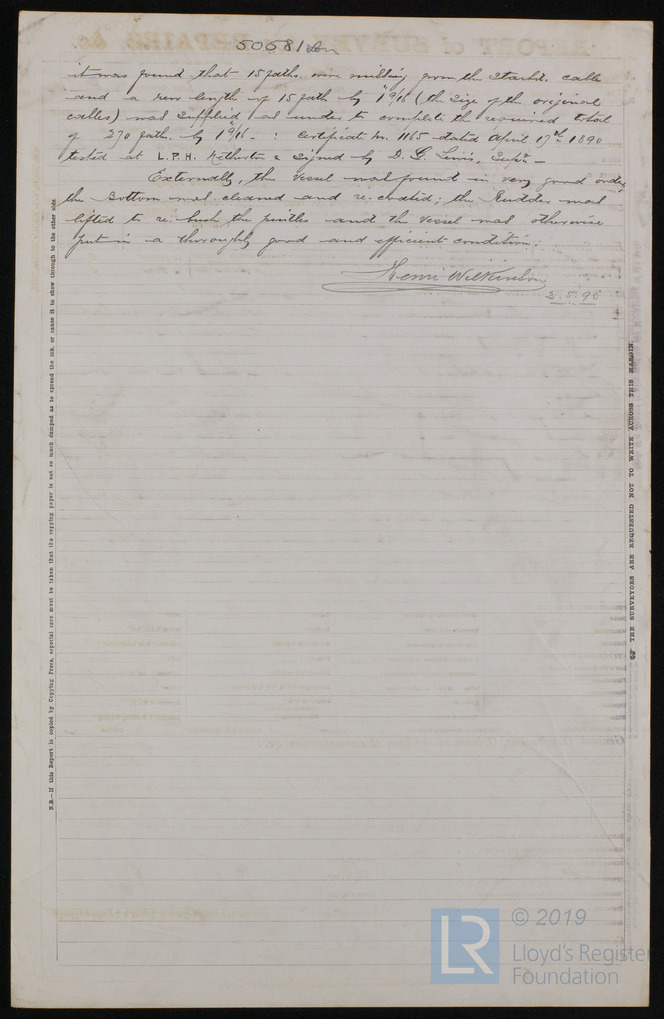 50581 Lon
it was found that 15 faths. were missing from the Starbd. cable
and a new length of 15 fath by 1 9/16" (the size of the original
cables) was supplied as under to complete the required total
of 270 fath. by 1 9/16" - : Certificate No. 1165 dated April 17th 1890
tested at L.P.H. Netherton & signed by D. G. Lewis, Supt. -
Externally, the vessel was found in very good order,
the Bottom was cleaned and re-coated; the Rudder was
lifted to re-bush the pintles and the vessel was otherwise
put in a thoroughly good and efficient condition.
Henri Wilkinson
2.5.90
N.B.—If this Report is copied by Copying Press, especial care must be taken that the copying paper is not so much damped as to spread the ink, or cause it to show through to the other side.
THE SURVEYORS ARE REQUESTED NOT TO WRITE ACROSS THIS MARGIN.
LR
© 2019
Lloyd's Register
Foundation